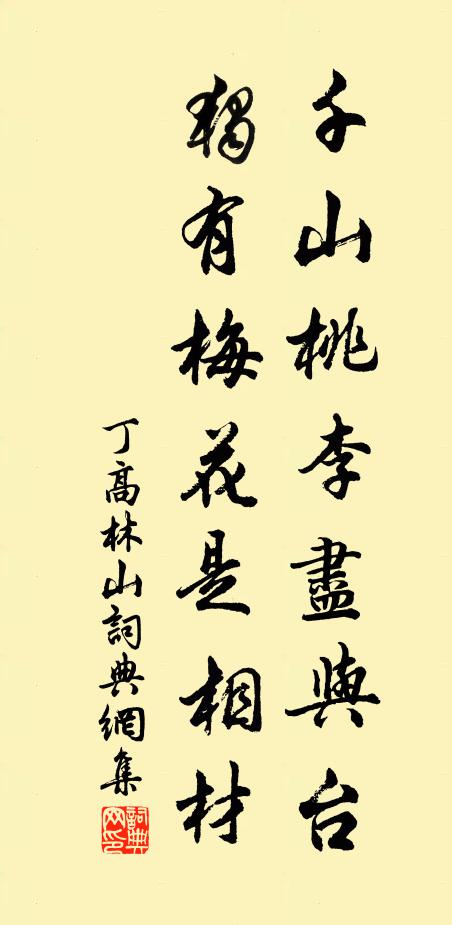 千山桃李盡與台
獨有梅花是相材
丁高林山詞典網集
詞典网印